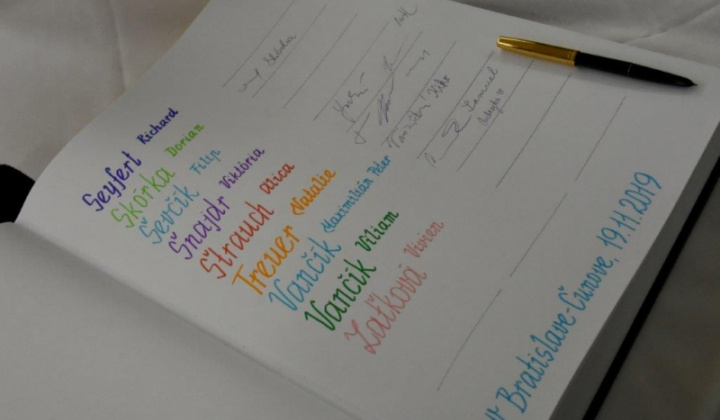 Seyfert Richard
Skórka Dorian
Ševčík Filip
Šnajdr Viktória
Štrauch Alica
Treuer Natalie
Vančík Maximilián Peter
Vančík Viliam
Zaťková Vivian
Samuel
v Bratislave-Čunove, 19.11.2019